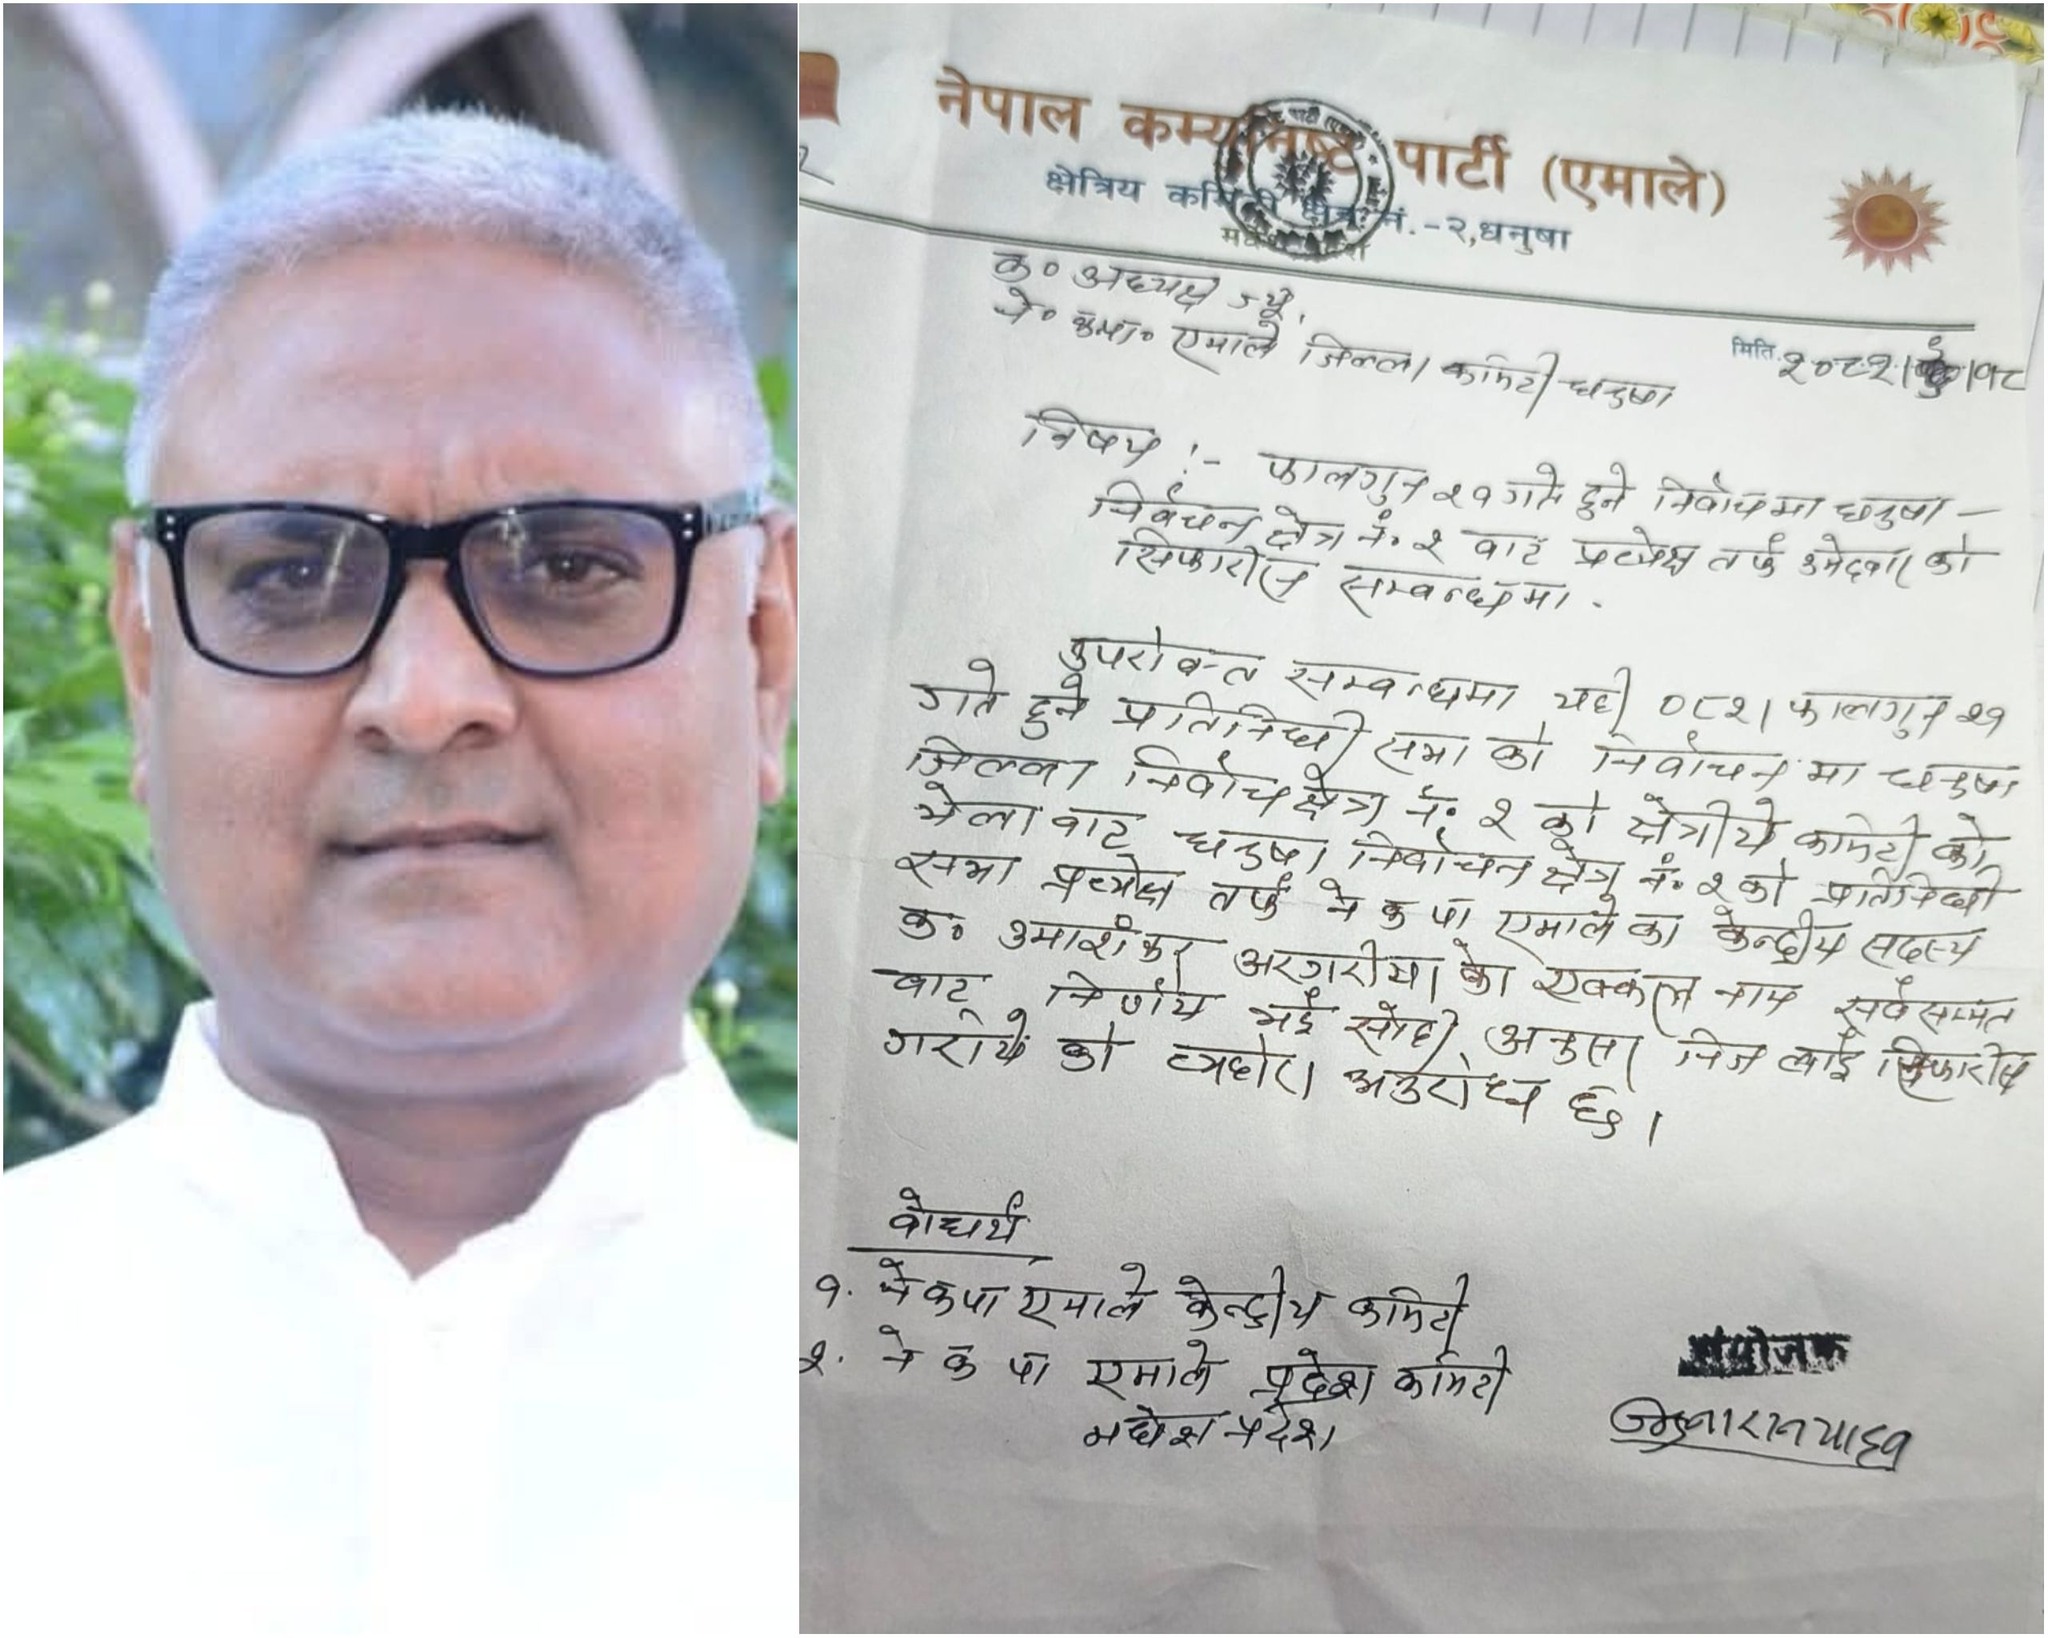 नेपाल कम्युनिष्ट पार्टी (एमाले)
क्षेत्रिय कमिटी क्षेत्र नं.-२,धनुषा
क० अध्यक्ष ज्यू,
ने० कपा० एमाले जिल्ला कमिटी धनुषा
मिति. २०८२। १८
विषय :- फालगुन २१ गते हुने निर्वाचमा धनुषा -
निर्वचन क्षेत्र नं. २ बाट प्रत्येक्ष तर्फ उमेदवार को
सिफारीस सम्बन्धमा.
उपरोक्त सम्बन्धमा यही ०८२। फालगुन २१
गते हुने प्रतिनिधी सभा को निर्वाचन मा धनुषा
जिल्ला निर्वाच क्षेत्र नं. २ को क्षेत्रीये कमिटी को,
भेला बाट धनुषा निर्वाचन क्षेत्र नं. २ को प्रतिनिधी
सभा प्रत्येक्ष तर्फ ने क पा एमाले का केन्द्रीय सदस्य
क. उमाशंकर अरगरीया को एक्कल नाम सर्वसम्मत
बाट निर्णय भई सोही अनुसार निज लाई सिफारीस
गरीये को व्यहोरा अनुरोध छ।
बोधार्थ
१. ने क पा एमाले केन्द्रीय कमिटी
२. ने क पा एमाले प्रदेश कमिटी
मधेश प्रदेश
संयोजक